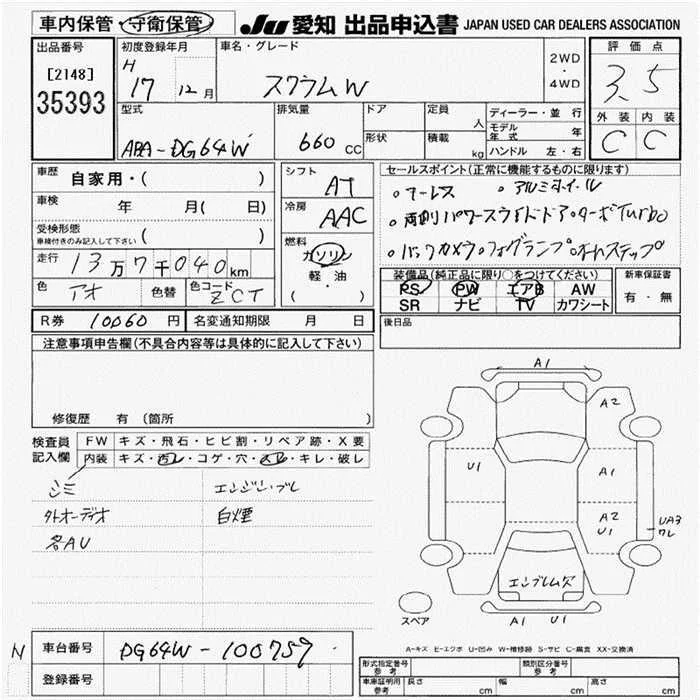 車内保管・守衛保管 JU 愛知 出品申込書 JAPAN USED CAR DEALERS ASSOCIATION
出品番号
[2148]
35393
初度登録年月
H 17 12 月
車名・グレード
スクラムW
2WD
・
4WD
評価点
3.5
外装 内装
C C
型式
ABA-DG64W
排気量
660 CC
ドア
形状
定員
人
積載
kg
ディーラー・並行
モデル年式 年
ハンドル 左・右
車歴 自家用・( )
車検 年 月( 日)
受検形態
車検付きのみ記入して下さい ( )
走行 13万7千040km
色 アオ 色替 色コード ZCT
シフト AT
冷房 AAC
燃料
ガソリン
・
軽・油
( )
セールスポイント(正常に機能するものに限ります)
○キーレス ○アルミホイール
○両側パワースライドドア○ターボTurbo
○バックカメラ○フォグランプ○オートステップ
装備品(純正品に限り○をつけてください)
PS PW エアB AW
SR ナビ TV カワシート
新車保証書
有・無
R券 10060 円 名変通知期限 月 日
後日品
注意事項申告欄(不具合内容等は具体的に記入して下さい)
修復歴 有 (箇所 )
検査員記入欄
FW キズ・飛石・ヒビ割・リペア跡・X要
内装 キズ・汚レ・コゲ・穴・スレ・キレ・破レ
シミ エンジンブレ
外オーディオ 白煙
各AU
A1
A2
U1
A1
A2
U1
UA3
ワレ
エンブレム欠
スペア
A1 U1
A-キズ E-エクボ U-凹み W-補修跡 S-サビ C-腐食 XX-交換済
N 車台番号 DG64W-100759
登録番号
形式指定番号 参考 類別区分番号 参考
車庫証明用 参考 長さ cm 幅 cm 高さ cm